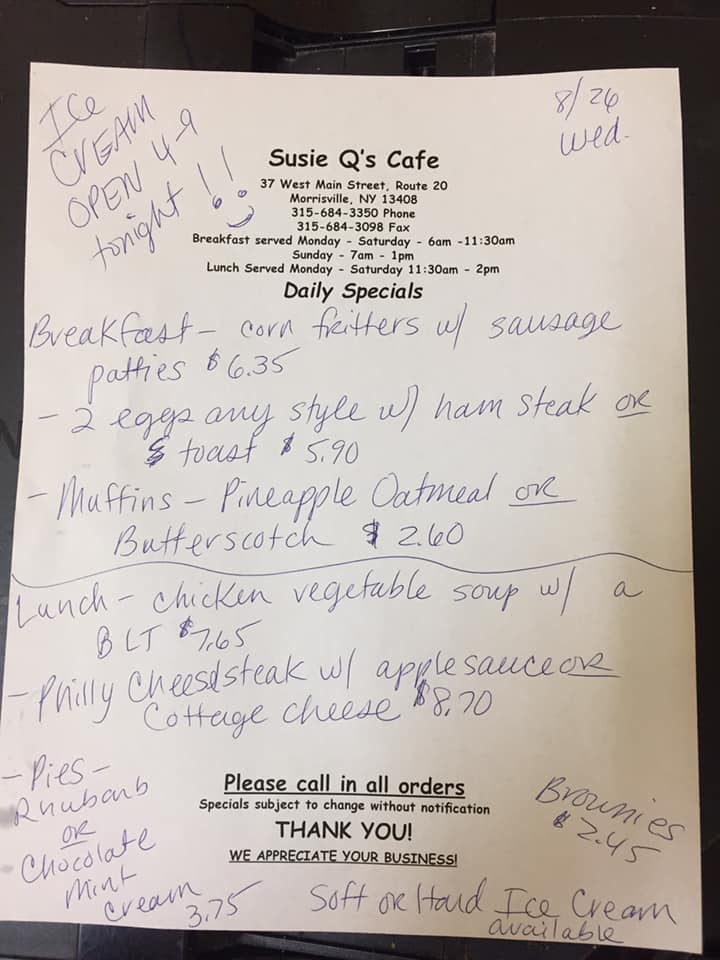 Ice
CREAM
OPEN 4-9
tonight !!
8/26
Wed.
Susie Q's Cafe
37 West Main Street, Route 20
Morrisville, NY 13408
315-684-3350 Phone
315-684-3098 Fax
Breakfast served Monday - Saturday - 6am -11:30am
Sunday - 7am - 1pm
Lunch Served Monday - Saturday 11:30am - 2pm
Daily Specials
Breakfast - corn fritters w/ sausage
patties $6.35
- 2 eggs any style w/ ham steak or
toast $5.90
- Muffins - Pineapple Oatmeal or
Butterscotch $2.60
Lunch - chicken vegetable soup w/ a
BLT $7.65
- Philly Cheesesteak w/ applesauce or
Cottage cheese $8.70
- Pies -
Rhubarb
or
Chocolate
Mint
Cream
3.75
Please call in all orders
Specials subject to change without notification
THANK YOU!
WE APPRECIATE YOUR BUSINESS!
Brownies
$2.45
Soft or Hard Ice Cream
available